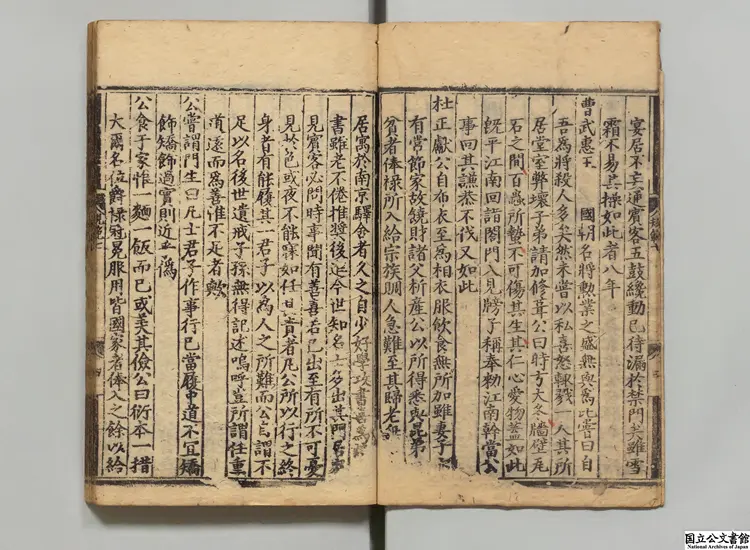 宴居不妄通賓客五鼓纔動已待漏於禁門矣雖雪
霜不易其操如此者八年
曹武惠王 國朝名將勲業之盛無與爲比嘗曰自
吾爲將殺人多矣然未嘗以私喜怒輒戮一人其所
居堂室弊壞子弟請加修葺公曰時方大冬牆壁瓦
石之間百蟲所蟄不可傷其生其仁心愛物盖如此
旣平江南回詣閤門入見牓子稱奉勑江南幹當公
事回其謙恭不伐又如此
杜正獻公自布衣至爲相衣服飲食無所加雖妻子
有常節家故饒財諸父析産公以所得悉與昆弟
貧者俸禄所入給宗族賙人急難至其歸老無
居寓於南京驛舍者久之自少好學攻書
書雖老不倦推奬後進今世知名士多出其門居家
見賓客必問時事聞有善喜若已出至有所不可憂
見於色或夜不能寐如任其責者凡公所以行之終
身者有能履其一君子以爲人之所難而公自謂不
足以名後世遺戒子孫無得記述嗚呼豈所謂任重
道遠而爲善惟不足者歟
公嘗謂門生曰凡士君子作事行已當履中道不宜矯
飾矯飾過實則近乎僞
公食于家惟一麵一飯而已或美其儉公曰衍本一措
大爾名位爵禄冠冕服用皆國家者俸入之餘以給
国立公文書館
National Archives of Japan